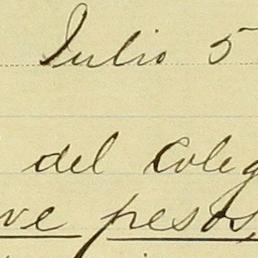 Julio 5
del Coleg
ve pesos,